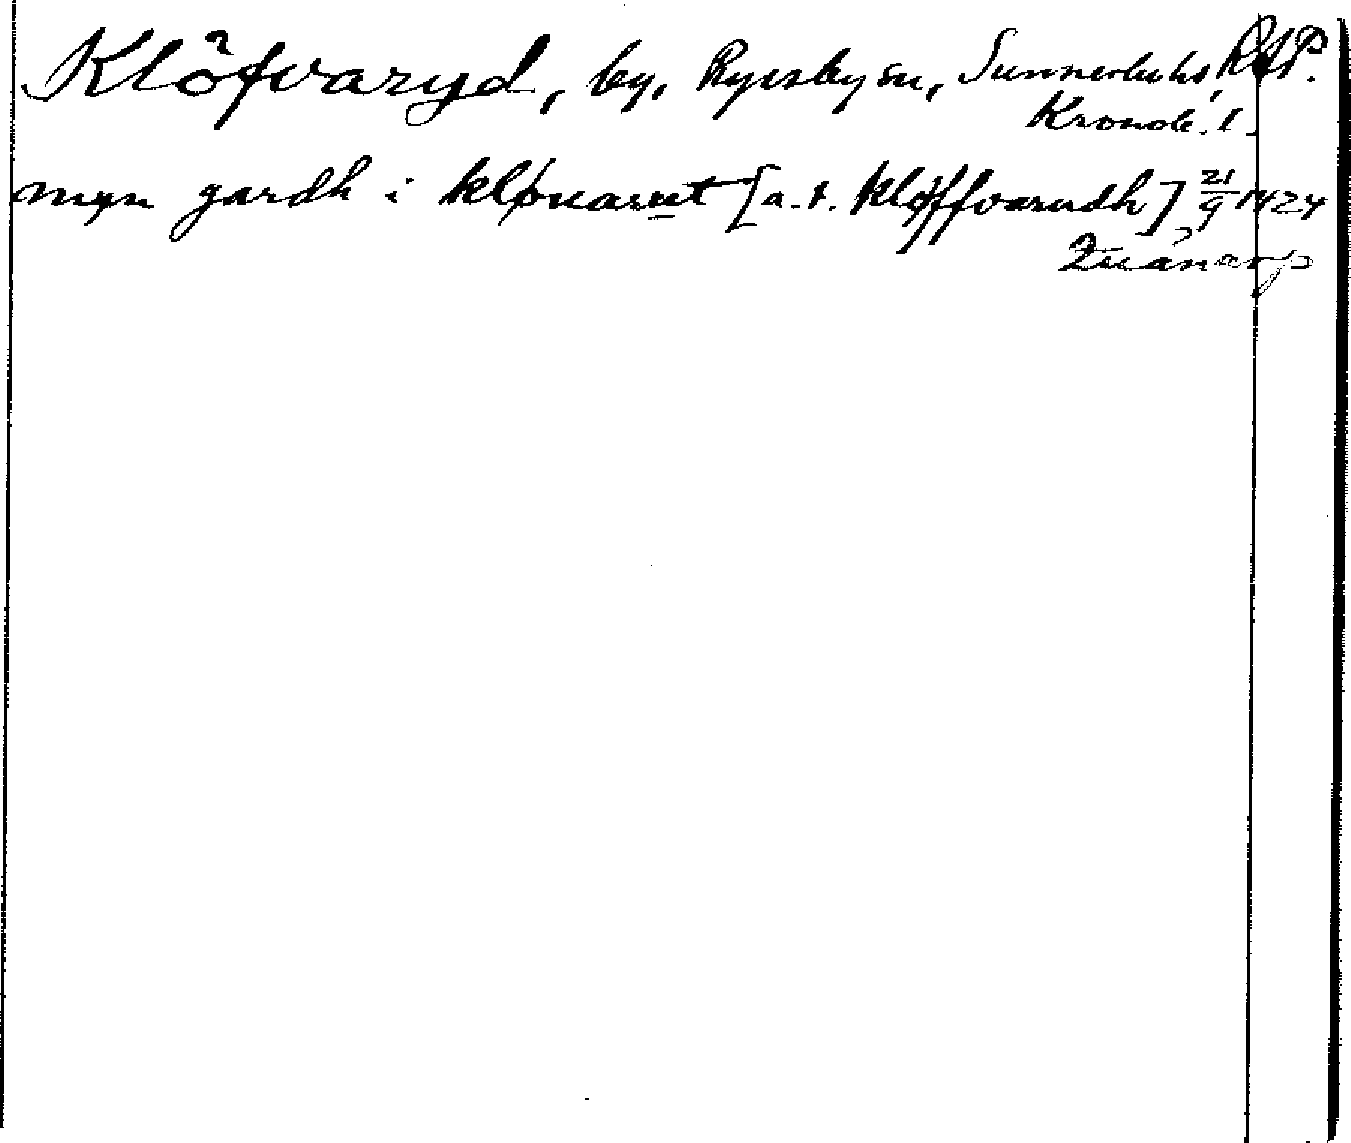 Klöfvaryd, by, Ryssby sn, Sunnerbo hd, RAP.
Kronob. l.
myn gardh i kløuarut [a. t. kløffvarudh] 21/9 1424
Quänarp